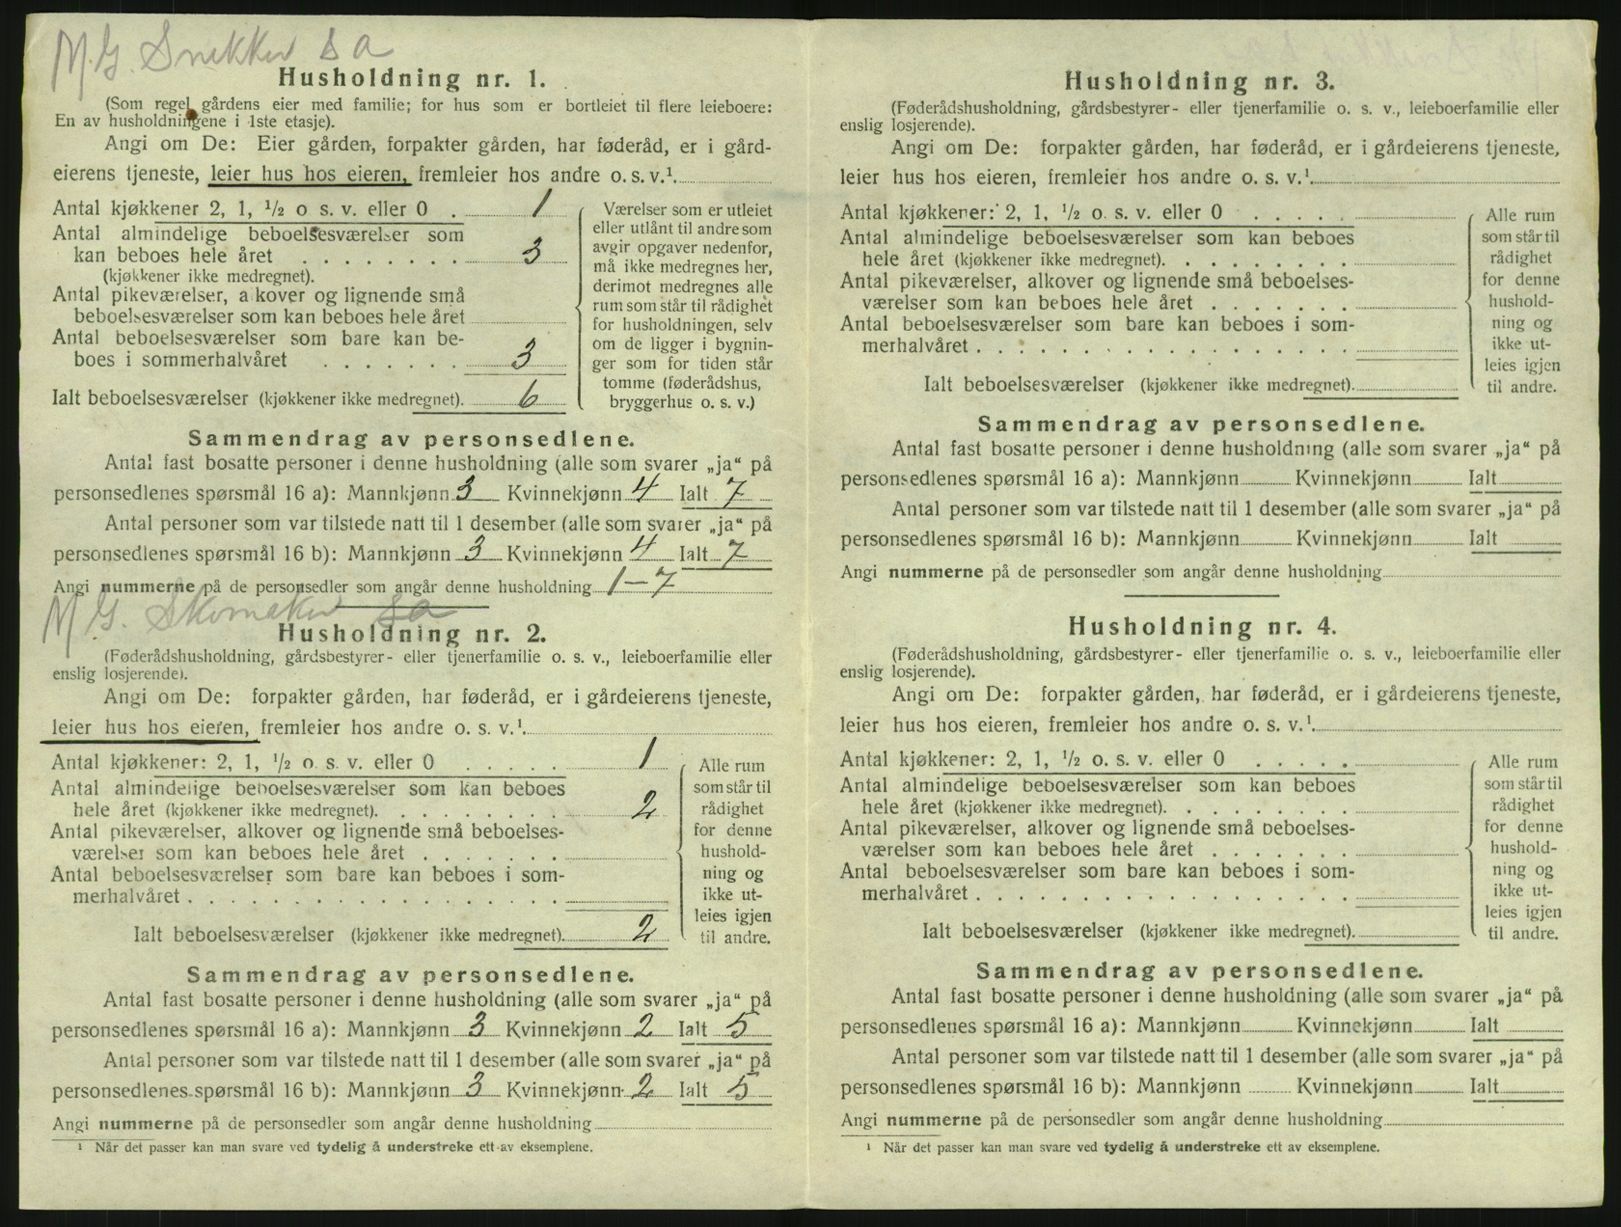 M.G. Snekker s a
Husholdning nr. 1.
(Som regel gårdens eier med familie; for hus som er bortleiet til flere leieboere:
En av husholdningene i 1ste etasje).
Angi om De: Eier gården, forpakter gården, har føderåd, er i gård-
eierens tjeneste, leier hus hos eieren, fremleier hos andre o. s. v.¹.
Antal kjøkkener 2, 1, ½ o s. v. eller 0 . 1
Antal almindelige beboelsesværelser som
kan beboes hele året . . . . . . . . 3
(kjøkkener ikke medregnet).
Antal pikeværelser, alkover og lignende små
beboelsesværelser som kan beboes hele året
Antal beboelsesværelser som bare kan be-
boes i sommerhalvåret . . . . . . . 3
Ialt beboelsesværelser (kjøkkener ikke medregnet). 6
Værelser som er utleiet
eller utlånt til andre som
avgir opgaver nedenfor,
må ikke medregnes her,
derimot medregnes alle
rum som står til rådighet
for husholdningen, selv
om de ligger i bygnin-
ger som for tiden står
tomme (føderådshus,
bryggerhus o. s. v.)
Sammendrag av personsedlene.
Antal fast bosatte personer i denne husholdning (alle som svarer „ja“ på
personsedlenes spørsmål 16 a): Mannkjønn 3 Kvinnekjønn 4 Ialt 7
Antal personer som var tilstede natt til 1 desember (alle som svarer „ja“ på
personsedlenes spørsmål 16 b): Mannkjønn 3 Kvinnekjønn 4 Ialt 7
Angi nummerne på de personsedler som angår denne husholdning 1–7
M.G. Skomaker s a
Husholdning nr. 2.
(Føderådshusholdning, gårdsbestyrer- eller tjenerfamilie o. s. v., leieboerfamilie eller
enslig losjerende).
Angi om De: forpakter gården, har føderåd, er i gårdeierens tjeneste,
leier hus hos eieren, fremleier hos andre o. s. v.¹.
Antal kjøkkener: 2, 1, ½ o. s. v. eller 0 . . . . . 1
Antal almindelige beboelsesværelser som kan beboes
hele året (kjøkkener ikke medregnet). . . . . . . . . 2
Antal pikeværelser, alkover og lignende små beboelses-
værelser som kan beboes hele året . . . . . . .
Antal beboelsesværelser som bare kan beboes i som-
merhalvåret . . . . . . . . . . . . . . . . . .
Ialt beboelsesværelser (kjøkkener ikke medregnet). 2
Alle rum
som står til
rådighet
for denne
hushold-
ning og
ikke ut-
leies igjen
til andre.
Sammendrag av personsedlene.
Antal fast bosatte personer i denne husholdning (alle som svarer „ja“ på
personsedlenes spørsmål 16 a): Mannkjønn 3 Kvinnekjønn 2 Ialt 5
Antal personer som var tilstede natt til 1 desember (alle som svarer „ja“ på
personsedlenes spørsmål 16 b): Mannkjønn 3 Kvinnekjønn 2 Ialt 5
Angi nummerne på de personsedler som angår denne husholdning
¹ Når det passer kan man svare ved tydelig å understreke ett av eksemplene.
Husholdning nr. 3.
(Føderådshusholdning, gårdsbestyrer- eller tjenerfamilie o. s. v., leieboerfamilie eller
enslig losjerende).
Angi om De: forpakter gården, har føderåd, er i gårdeierens tjeneste,
leier hus hos eieren, fremleier hos andre o. s. v.¹.
Antal kjøkkener: 2, 1, ½ o. s. v. eller 0 . . . . .
Antal almindelige beboelsesværelser som kan beboes
hele året (kjøkkener ikke medregnet). . . . . . . . .
Antal pikeværelser, alkover og lignende små beboelses-
værelser som kan beboes hele året . . . . . . .
Antal beboelsesværelser som bare kan beboes i som-
merhalvåret . . . . . . . . . . . . . . . . . .
Ialt beboelsesværelser (kjøkkener ikke medregnet).
Alle rum
som står til
rådighet
for denne
hushold-
ning og
ikke ut-
leies igjen
til andre.
Sammendrag av personsedlene.
Antal fast bosatte personer i denne husholdning (alle som svarer „ja“ på
personsedlenes spørsmål 16 a): Mannkjønn Kvinnekjønn Ialt
Antal personer som var tilstede natt til 1 desember (alle som svarer „ja“ på
personsedlenes spørsmål 16 b): Mannkjønn Kvinnekjønn Ialt
Angi nummerne på de personsedler som angår denne husholdning
Husholdning nr. 4.
(Føderådshusholdning, gårdsbestyrer- eller tjenerfamilie o. s. v., leieboerfamilie eller
enslig losjerende).
Angi om De: forpakter gården, har føderåd, er i gårdeierens tjeneste,
leier hus hos eieren, fremleier hos andre o. s. v.¹.
Antal kjøkkener: 2, 1, ½ o. s. v. eller 0 . . . . .
Antal almindelige beboelsesværelser som kan beboes
hele året (kjøkkener ikke medregnet). . . . . . . . .
Antal pikeværelser, alkover og lignende små beboelses-
værelser som kan beboes hele året . . . . . . .
Antal beboelsesværelser som bare kan beboes i som-
merhalvåret . . . . . . . . . . . . . . . . . .
Ialt beboelsesværelser (kjøkkener ikke medregnet).
Alle rum
som står til
rådighet
for denne
hushold-
ning og
ikke ut-
leies igjen
til andre.
Sammendrag av personsedlene.
Antal fast bosatte personer i denne husholdning (alle som svarer „ja“ på
personsedlenes spørsmål 16 a): Mannkjønn Kvinnekjønn Ialt
Antal personer som var tilstede natt til 1 desember (alle som svarer „ja“ på
personsedlenes spørsmål 16 b): Mannkjønn Kvinnekjønn Ialt
Angi nummerne på de personsedler som angår denne husholdning
¹ Når det passer kan man svare ved tydelig å understreke ett av eksemplene.